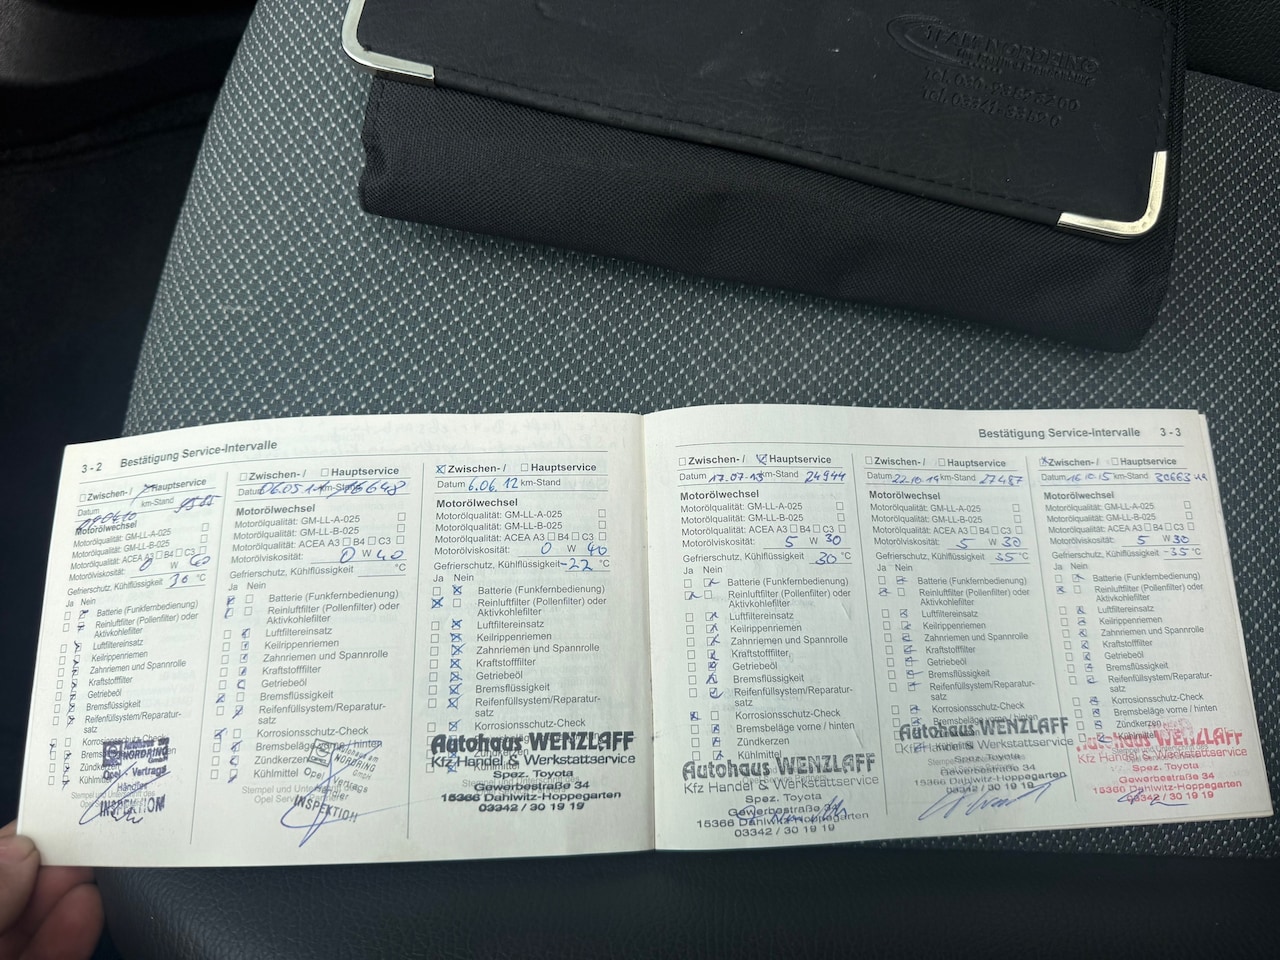 3 - 2 Bestätigung Service-Intervalle
Zwischen- / Hauptservice
Datum km-Stand
Motorölwechsel
Motorölqualität: GM-LL-A-025
Motorölqualität: GM-LL-B-025
Motorölqualität: ACEA A3 B4 C3
Motorölviskosität: 0 W 40
Gefrierschutz, Kühlflüssigkeit 30 °C
Ja Nein
Batterie (Funkfernbedienung)
Reinluftfilter (Pollenfilter) oder
Aktivkohlefilter
Luftfiltereinsatz
Keilrippenriemen
Zahnriemen und Spannrolle
Kraftstofffilter
Getriebeöl
Bremsflüssigkeit
Reifenfüllsystem/Reparatur-
satz
Korrosionsschutz-Check
Zündkerzen
Kühlmittel
Autohaus
NORDRING
Opel - Vertrags
Händler
INSPEKTION
Zwischen- / Hauptservice
Datum 06.05.11 km-Stand 16648
Motorölwechsel
Motorölqualität: GM-LL-A-025
Motorölqualität: GM-LL-B-025
Motorölqualität: ACEA A3 B4 C3
Motorölviskosität: 0 W 40
Gefrierschutz, Kühlflüssigkeit °C
Ja Nein
Batterie (Funkfernbedienung)
Reinluftfilter (Pollenfilter) oder
Aktivkohlefilter
Luftfiltereinsatz
Keilrippenriemen
Zahnriemen und Spannrolle
Kraftstofffilter
Getriebeöl
Bremsflüssigkeit
Reifenfüllsystem/Reparatur-
satz
Korrosionsschutz-Check
Bremsbeläge vorne / hinten
Zündkerzen
Kühlmittel
NORDRING
GmbH
Opel - Vertrags
Händler
INSPEKTION
Zwischen- / Hauptservice
Datum 6.06.12 km-Stand
Motorölwechsel
Motorölqualität: GM-LL-A-025
Motorölqualität: GM-LL-B-025
Motorölqualität: ACEA A3 B4 C3
Motorölviskosität: 0 W 40
Gefrierschutz, Kühlflüssigkeit -22 °C
Ja Nein
Batterie (Funkfernbedienung)
Reinluftfilter (Pollenfilter) oder
Aktivkohlefilter
Luftfiltereinsatz
Keilrippenriemen
Zahnriemen und Spannrolle
Kraftstofffilter
Getriebeöl
Bremsflüssigkeit
Reifenfüllsystem/Reparatur-
satz
Korrosionsschutz-Check
Autohaus WENZLAFF
Kfz Handel & Werkstattservice
Spez. Toyota
Gewerbestraße 34
15366 Dahlwitz-Hoppegarten
03342 / 30 19 19
Bestätigung Service-Intervalle 3 - 3
Zwischen- / Hauptservice
Datum 17.07.13 km-Stand 24944
Motorölwechsel
Motorölqualität: GM-LL-A-025
Motorölqualität: GM-LL-B-025
Motorölqualität: ACEA A3 B4 C3
Motorölviskosität: 5 W 30
Gefrierschutz, Kühlflüssigkeit 30 °C
Ja Nein
Batterie (Funkfernbedienung)
Reinluftfilter (Pollenfilter) oder
Aktivkohlefilter
Luftfiltereinsatz
Keilrippenriemen
Zahnriemen und Spannrolle
Kraftstofffilter
Getriebeöl
Bremsflüssigkeit
Reifenfüllsystem/Reparatur-
satz
Korrosionsschutz-Check
Bremsbeläge vorne / hinten
Zündkerzen
Kühlmittel
Autohaus WENZLAFF
Kfz Handel & Werkstattservice
Spez. Toyota
Gewerbestraße 34
15366 Dahlwitz-Hoppegarten
03342 / 30 19 19
Zwischen- / Hauptservice
Datum 22.10.14 km-Stand 27487
Motorölwechsel
Motorölqualität: GM-LL-A-025
Motorölqualität: GM-LL-B-025
Motorölqualität: ACEA A3 B4 C3
Motorölviskosität: 5 W 30
Gefrierschutz, Kühlflüssigkeit 35 °C
Ja Nein
Batterie (Funkfernbedienung)
Reinluftfilter (Pollenfilter) oder
Aktivkohlefilter
Luftfiltereinsatz
Keilrippenriemen
Zahnriemen und Spannrolle
Kraftstofffilter
Getriebeöl
Bremsflüssigkeit
Reifenfüllsystem/Reparatur-
satz
Korrosionsschutz-Check
Bremsbeläge vorne / hinten
Autohaus WENZLAFF
Kfz Handel & Werkstattservice
Spez. Toyota
Gewerbestraße 34
15366 Dahlwitz-Hoppegarten
03342 / 30 19 19
Zwischen- / Hauptservice
Datum 16.10.15 km-Stand 30663
Motorölwechsel
Motorölqualität: GM-LL-A-025
Motorölqualität: GM-LL-B-025
Motorölqualität: ACEA A3 B4 C3
Motorölviskosität: 5 W 30
Gefrierschutz, Kühlflüssigkeit -35 °C
Ja Nein
Batterie (Funkfernbedienung)
Reinluftfilter (Pollenfilter) oder
Aktivkohlefilter
Luftfiltereinsatz
Keilrippenriemen
Zahnriemen und Spannrolle
Kraftstofffilter
Getriebeöl
Bremsflüssigkeit
Reifenfüllsystem/Reparatur-
satz
Korrosionsschutz-Check
Bremsbeläge vorne / hinten
Zündkerzen
Kühlmittel
Autohaus WENZLAFF
Kfz Handel & Werkstattservice
Spez. Toyota
Gewerbestraße 34
15366 Dahlwitz-Hoppegarten
03342 / 30 19 19